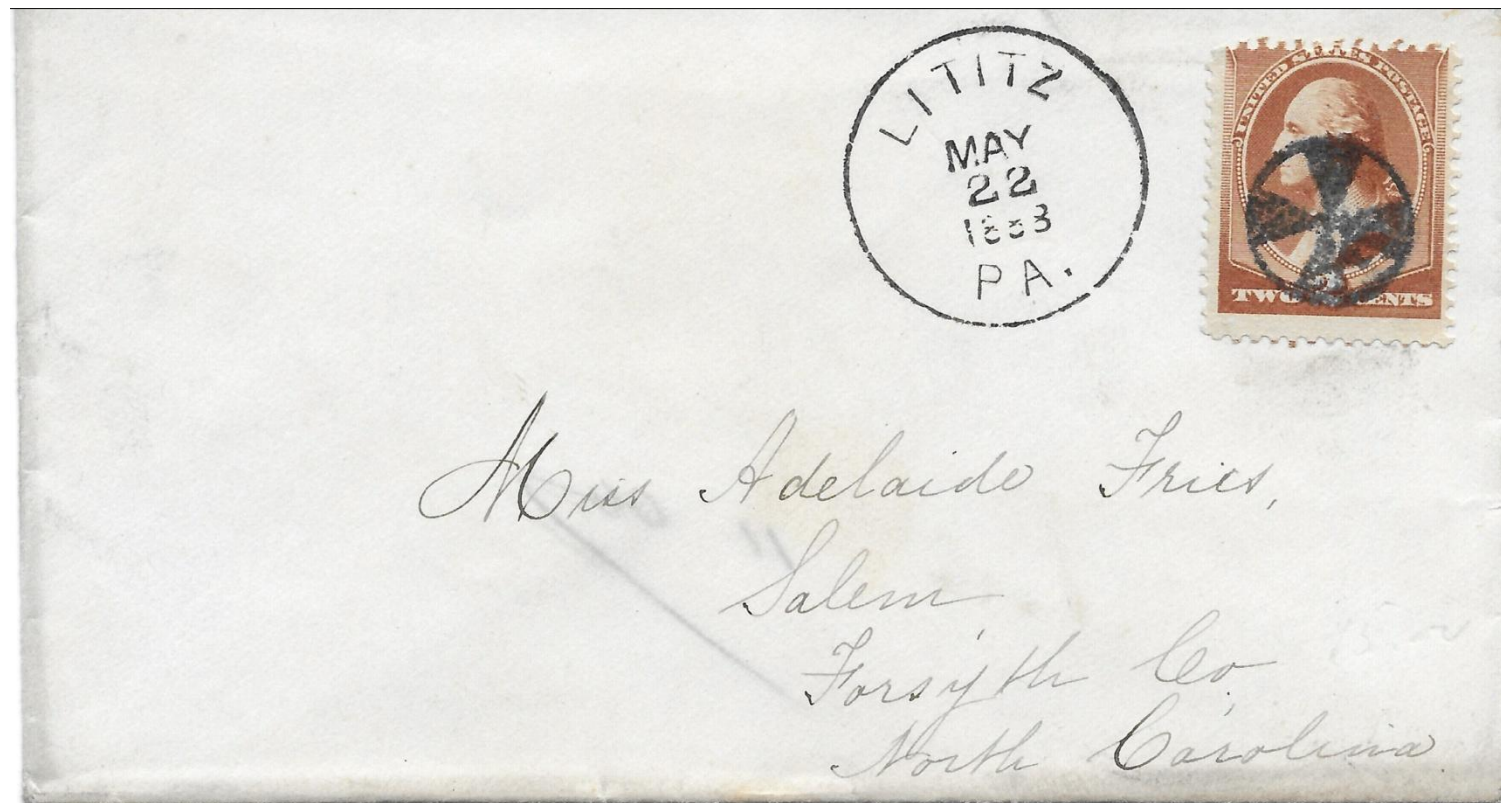 LITITZ
MAY
22
1883
PA.
UNITED STATES POSTAGE
TWO CENTS
Miss Adelaide Fries,
Salem
Forsyth Co
North Carolina